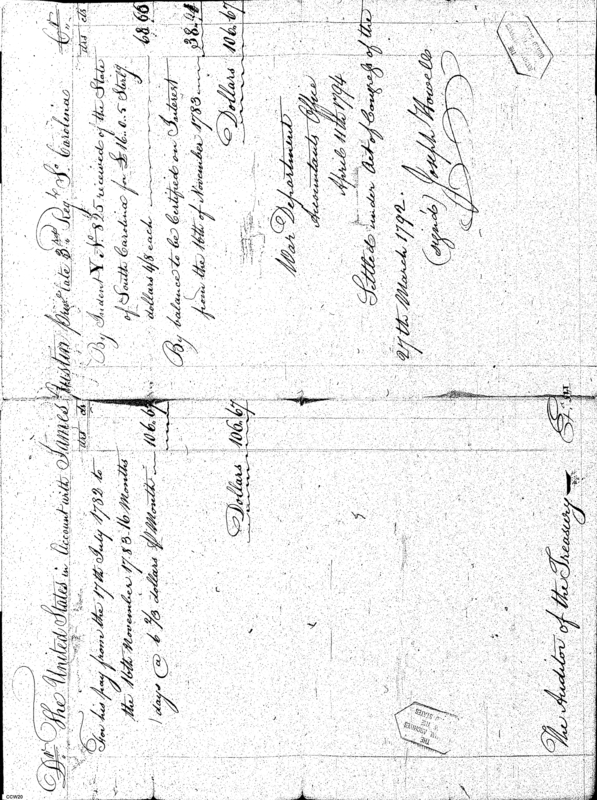 Dr. The United States in Account with James Justin priv.e late 3rd Reg.t So. Carolina Cr.
dlls cts
For his pay from the 17th July 1782 to
the 16th November 1783. 16 Months
days @ 6 2/3 dollars P Month 106.67
Dollars 106.67
dlls cts
By Indent Y No. 825 received of the State
of South Carolina for £16.0.5 Starlg
dollars 4/8 each 68.66
By balance to be Certified on Interest
from the 16th of November 1783 38.01
Dollars 106.67
War Department
Accountants Office
April 11th 1794
Settled under Act of Congress of the
27th March 1792.
(signed) Joseph Howell
The Auditor of the Treasury
THE
ARCHIVES
STATES
CCW20